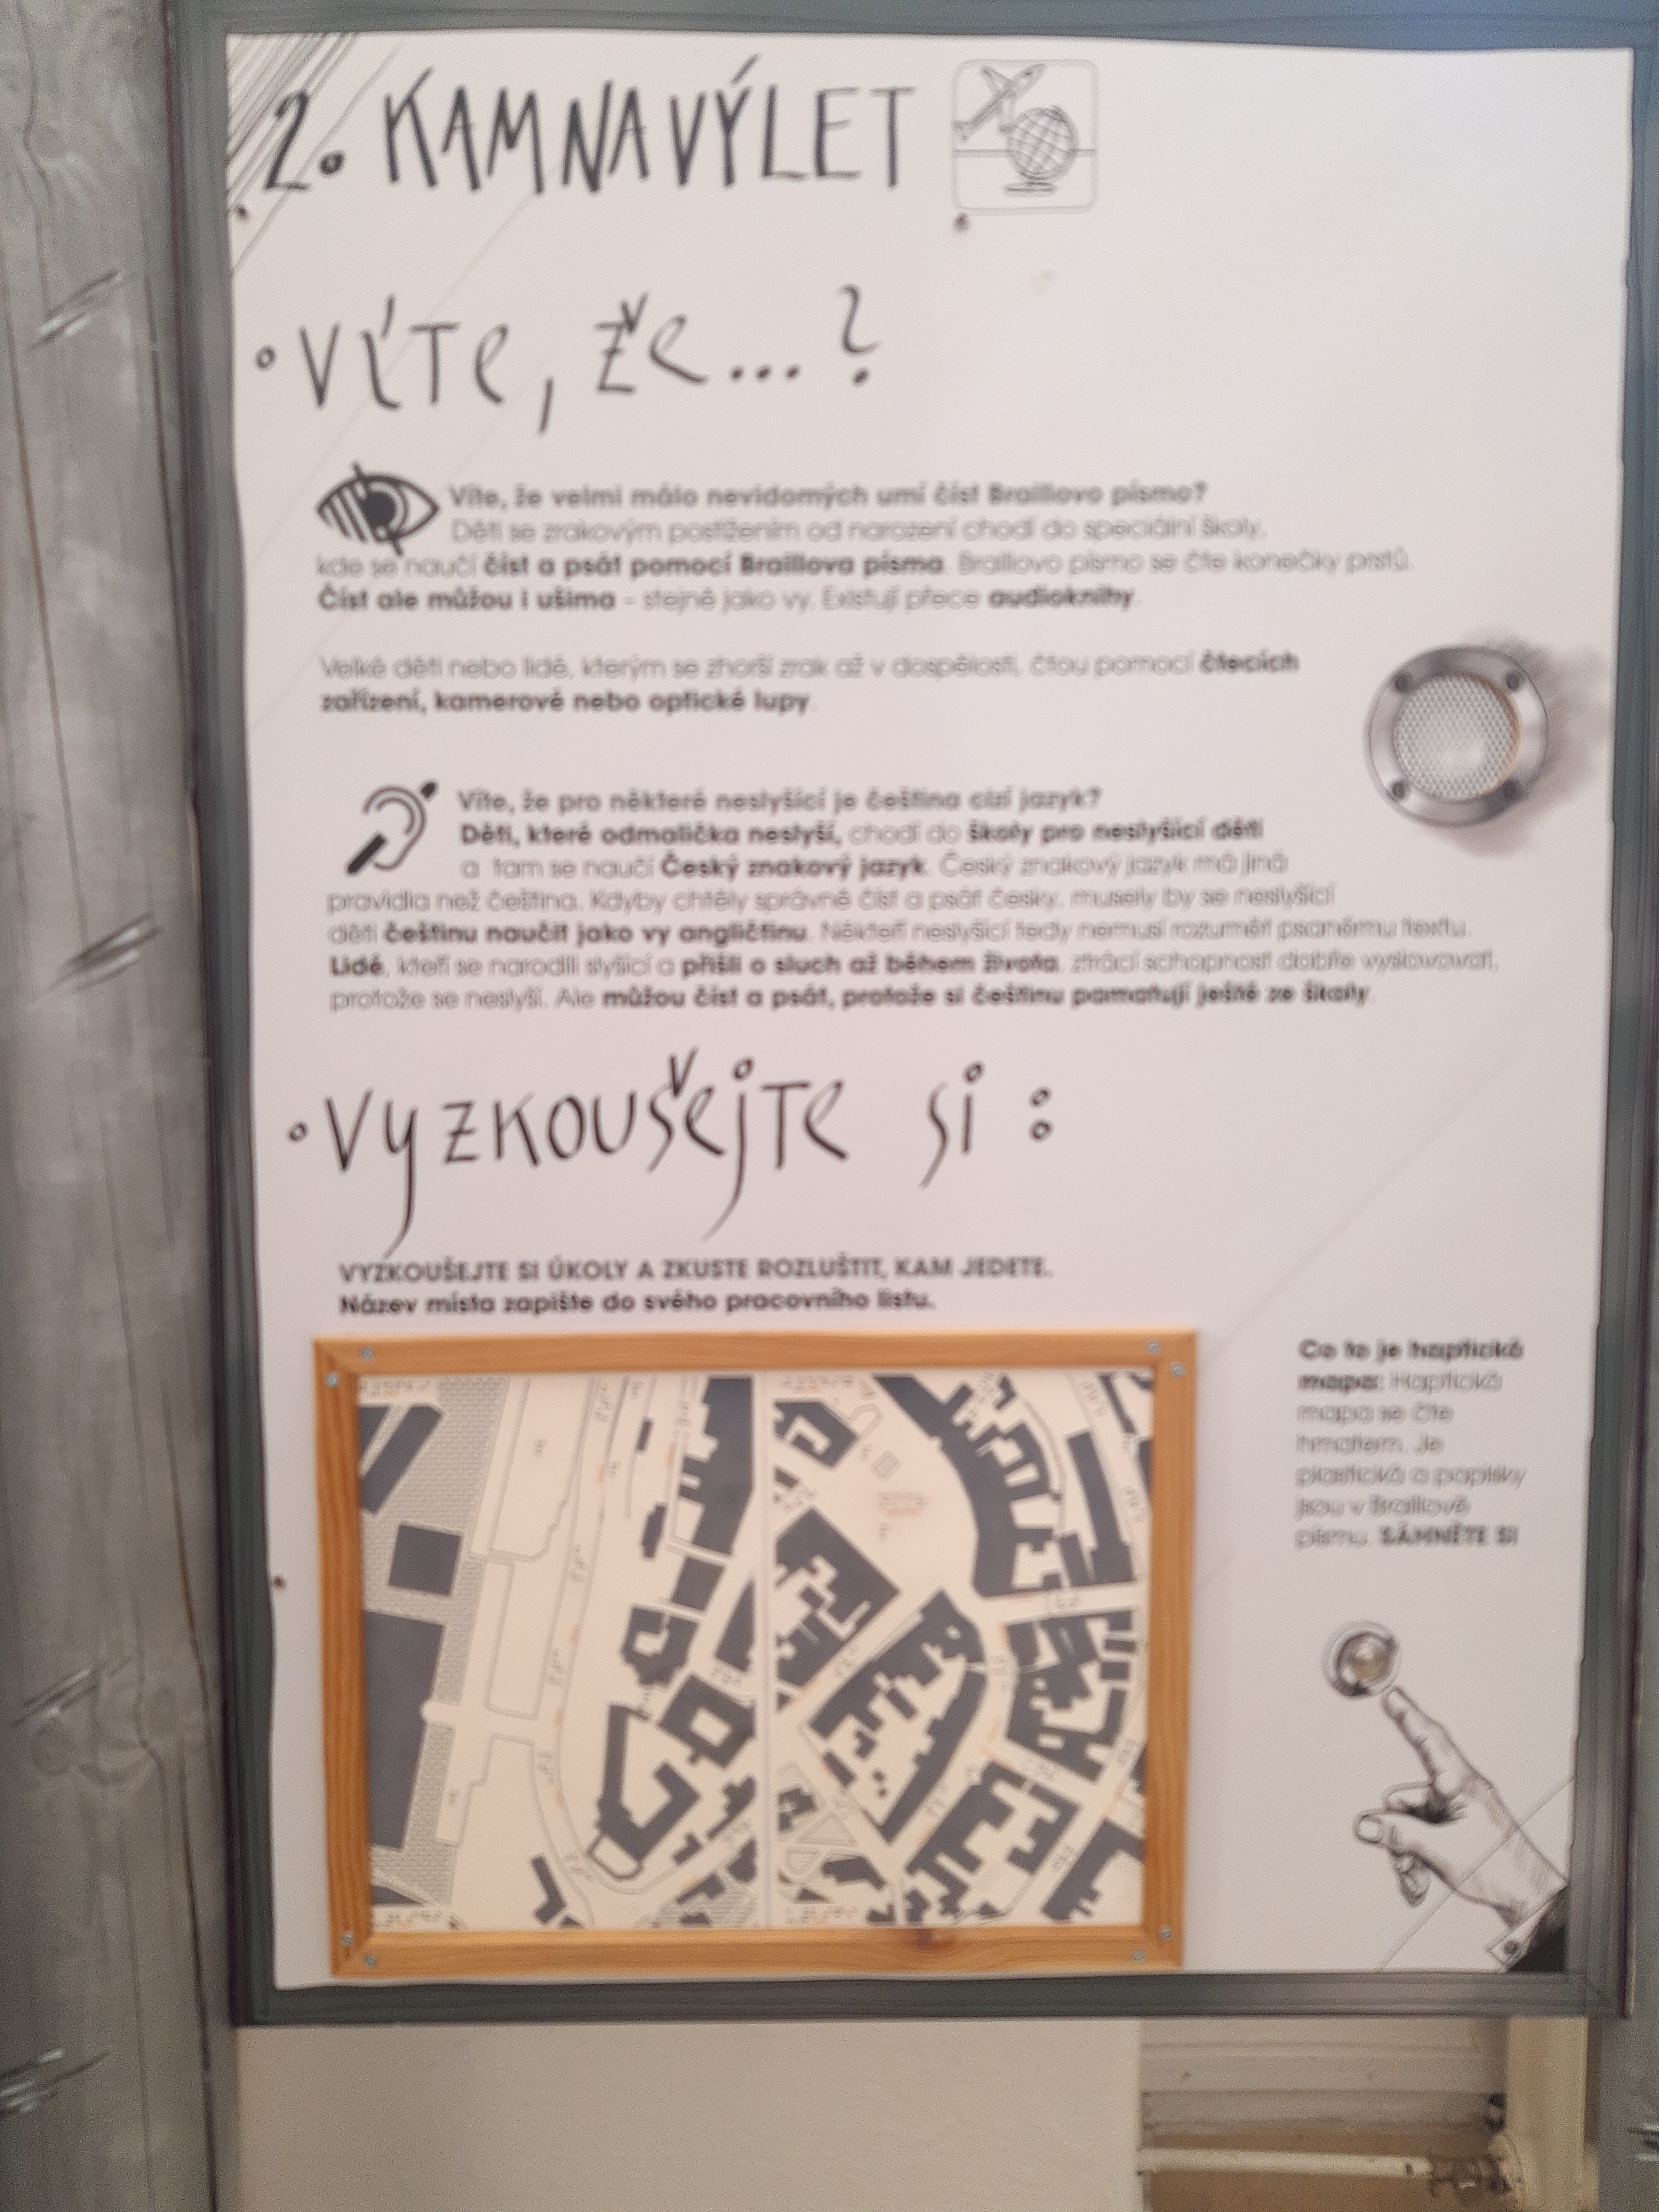 2. KAM NA VÝLET
• VÍTE, ŽE...?
Víte, že velmi málo nevidomých umí číst Braillovo písmo?
Děti se zrakovým postižením od narození chodí do speciální školy,
kde se naučí číst a psát pomocí Braillova písma. Braillovo písmo se čte konečky prstů.
Číst ale můžou i ušima – stejně jako vy. Existují přece audioknihy.
Velké děti nebo lidé, kterým se zhorší zrak až v dospělosti, čtou pomocí čtecích
zařízení, kamerové nebo optické lupy.
Víte, že pro některé neslyšící je čeština cizí jazyk?
Děti, které odmalička neslyší, chodí do školy pro neslyšící děti
a tam se naučí Český znakový jazyk. Český znakový jazyk má jiná
pravidla než čeština. Kdyby chtěly správně číst a psát česky, musely by se neslyšící
děti češtinu naučit jako vy angličtinu. Někteří neslyšící tedy nemusí rozumět psanému textu.
Lidé, kteří se narodili slyšící a přišli o sluch až během života, ztrácí schopnost dobře vyslovovat,
protože se neslyší. Ale můžou číst a psát, protože si češtinu pamatují ještě ze školy.
• VYZKOUŠEJTE SI :
VYZKOUŠEJTE SI ÚKOLY A ZKUSTE ROZLUŠTIT, KAM JEDETE.
Název místa zapište do svého pracovního listu.
Co to je haptická
mapa: Haptická
mapa se čte
hmatem. Je
plastická a popisky
jsou v Braillově
písmu. SÁHNĚTE SI